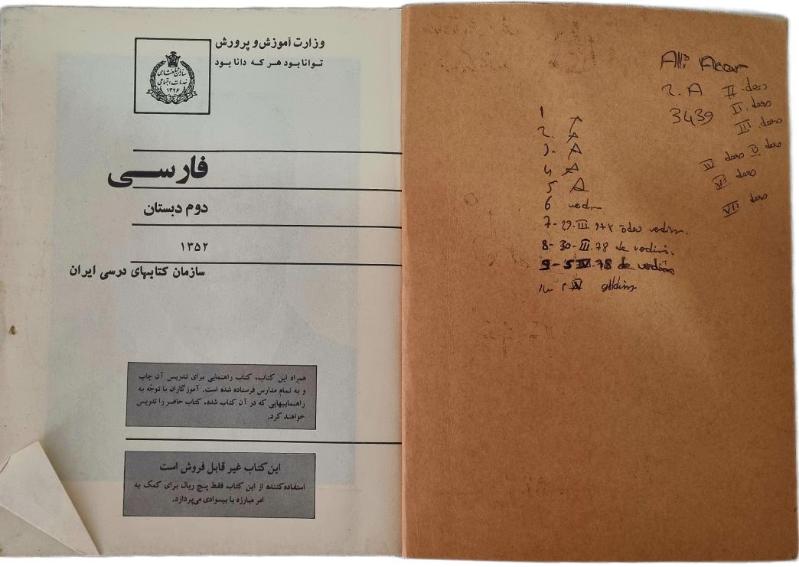 وزارت آموزش و پرورش
توانا بود هر که دانا بود
سازمان شاهنشاهی
خدمات اجتماعی
۱۳۲۶
فارسی
دوم دبستان
۱۳۵۲
سازمان کتابهای درسی ایران
همراه این کتاب، کتاب راهنمایی برای تدریس آن چاپ
و به تمام مدارس فرستاده شده است. آموزگاران با توجّه به
راهنماییهایی که در آن کتاب شده، کتاب حاضر را تدریس
خواهند کرد.
این کتاب غیر قابل فروش است
استفاده‌کننده از این کتاب فقط پنج ریال برای کمک به
امر مبارزه با بیسوادی می‌پردازد.
Ali Acar
2. A II. ders
3439 II. ders
III. ders
IV ders V ders
VI ders
VII ders
1
2. A
3. A
4 A
5 A
6 verdim
7-29.III ödev verdim.
8-30-III.78 de verdim.
9-5 IV.78 de verdim
aldım